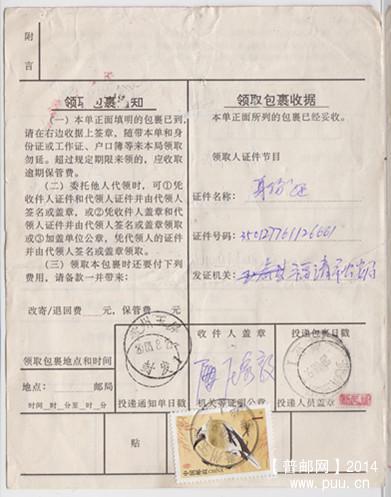 附言
领取包裹通知
(一)本单正面填明的包裹已到
请在右边收据上签章,随带本单和身
份证或工作证、户口簿等来本局领取
勿延。超过规定期限来领的,应收取
逾期保管费。
(二)委托他人代领时,可①凭
收件人证件和代领人证件并由代领人
签名或盖章,或②凭收件人盖章和代
领人证件并由代领人签名或盖章领取
或③加盖单位公章,凭代领人的证件
并由代领人签名或盖章领取。
(三)领取本包裹时还要付下列
费用,请备款一并带来:
改寄/退回费 元,保管费 元。
领取包裹收据
本单正面所列的包裹已经妥收。
领取人证件节目
证件名称:身份证
证件号码:
发证机关:福清市公安局
领取包裹地点和时间
地点: 邮局
时间 时 分至 时 分
投递通知单日戳
收件人盖章
机关等证明公章
投递包裹日戳
投递人员盖章
贴
中国邮政 CHINA
【普邮网】2014
www.puu.cn